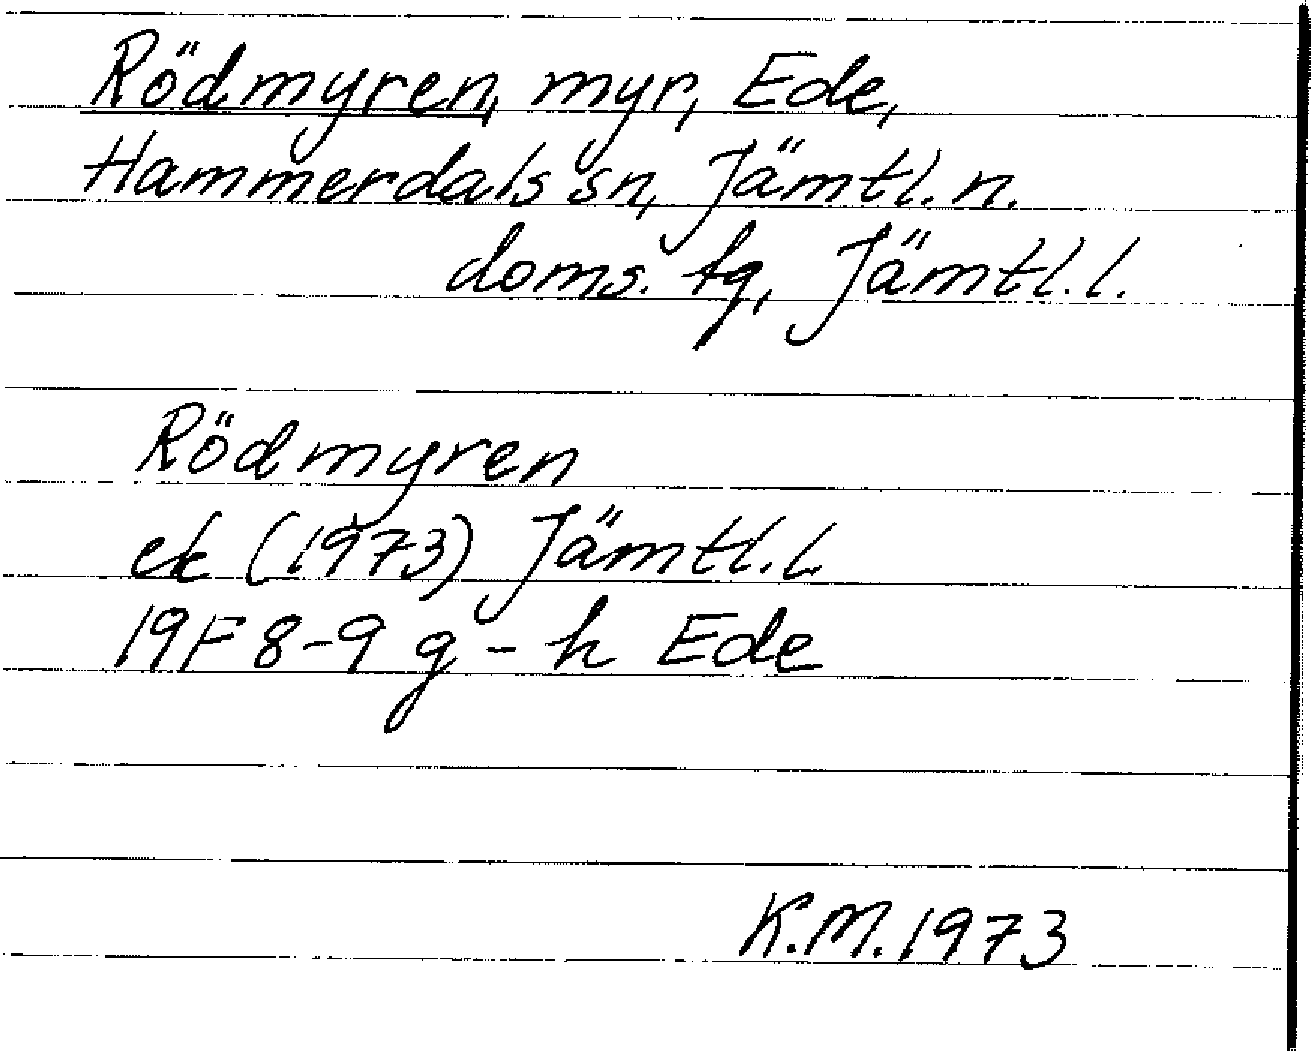 Rödmyren, myr, Ede,
Hammerdals sn, Jämtl. n.
doms. tg, Jämtl. l.
Rödmyren
ek (1973) Jämtl. l.
19F 8-9 g - h Ede
K.M. 1973